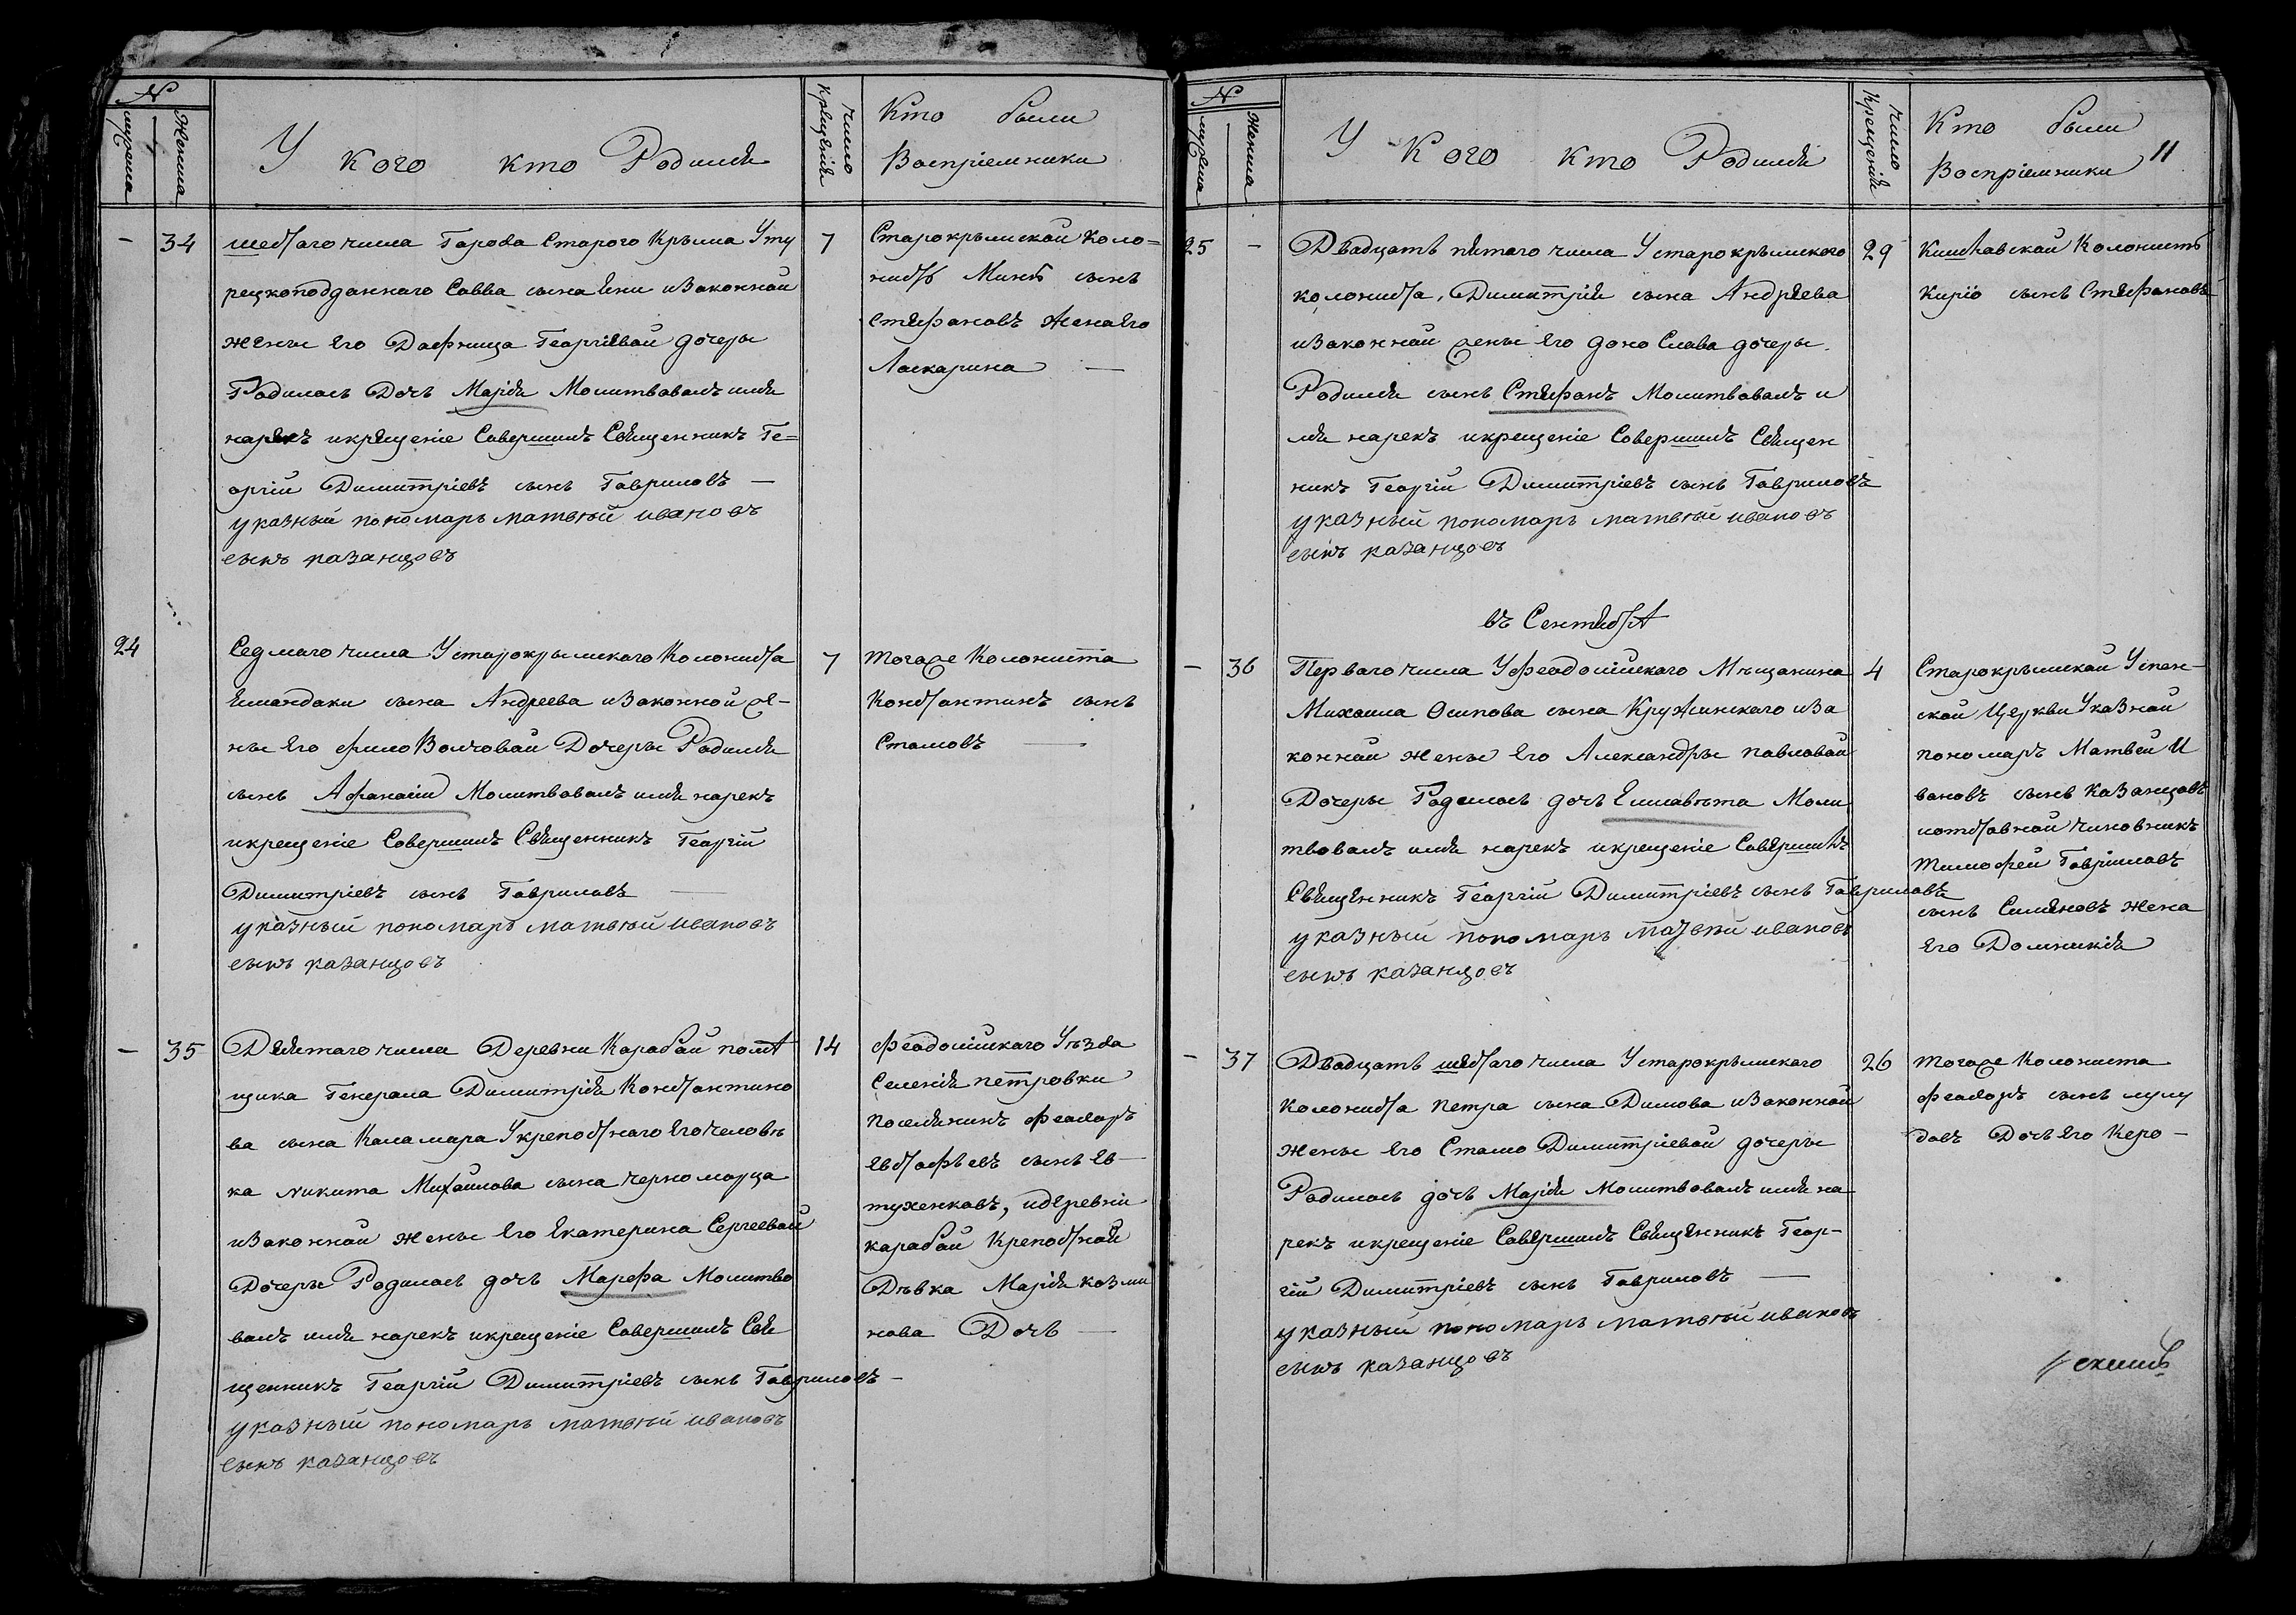 №
мужеска
Женска
У кого кто Родился
число крещенія
Кто были
Воспріемники
-
34
шестаго числа Города Старого Крыма Уту
рецкоподданнаго Савва сына Яни изаконной
жены его Дафница Георгіевой дочеры
Родилась Дочь Марія Молитвовалъ имя
нарекъ икрещеніе Совершилъ Священникъ Ге=
оргіи Димитріевъ сынъ Гавриловъ —
указный пономарь матвѣй ивановъ
сынъ казанцовъ
7
Старокрымской Коло=
нистъ Минчо сынъ
Стефановъ Жена Его
Ласкарина —
24
Седмаго числа Устарокрымскаго Колониста
Емандаки сына Андреева изаконной же-
ны Его Фимо Волчовай Дочеры Родился
сынъ Афанасіи Молитвовалъ имя нарекъ
икрещеніе Совершилъ Священникъ Георгій
Димитріевъ сынъ Гавриловъ —
указный пономарь матвѣй ивановъ
сынъ казанцовъ
7
Тогоже Колониста
Константинъ сынъ
Стамовъ —
-
35
Девятаго числа Деревни Карабай помѣ
щика Генерала Димитрія Константино
ва сына Каламара Укрепостнаго Его человѣ
ка Никита Михайлова сына Черноморца
изаконной жены Его Екатерина Сергеевай
Дочеры Родилась дочь Марефа Молитво
валъ имя нарекъ икрещеніе Совершилъ Свя
щенникъ Георгій Димитріевъ сынъ Гавриловъ —
указный пономарь матвѣй ивановъ
сынъ казанцовъ
14
Феодосійскаго Уѣзда
Селенія петровки
Поселяникъ Феодоръ
Евстафьевъ сынъ Ев-
тухенковъ, идеревни
карабай Крепостной
Дѣвка Марія козми
нова Дочь —
№
мужеска
Женска
У кого кто Родился
число Крещенія
Кто были
Воспріемники
11
25
-
Двадцать пятаго числа Устарокрымскаго
колониста, Димитрія сына Андреева
изаконной жены Его доно Слава дочеры
Родился сынъ Стефанъ Молитвовалъ и
мя нарекъ икрещеніе Совершилъ Священ
никъ Георгіи Димитріевъ сынъ Гавриловъ
указный пономарь матвѣй ивановъ
сынъ казанцовъ
29
Кишлавской Колонистъ
Киріо сынъ Стефановъ
въ Сентябрѣ
-
36
Перваго числа Уфеодосійскаго Мѣщанина
Михаила Осипова сына Кружинскаго иза
конной жены Его Александры павловай
Дочеры Родилась дочь Елисавѣта Моли
твовалъ имя нарекъ икрещеніе Совершилъ
Священникъ Георгіи Димитріевъ сынъ Гавриловъ
указный пономарь матвѣй ивановъ
сынъ казанцовъ
4
Старокрымской Успен-
ской Церкви Указной
пономарь Матвей И
вановъ сынъ Казанцовъ
иотставной чиновникъ
Тимофей Гавріиловъ
сынъ Симяновъ Жена
Его Домникія
-
37
Двадцать шестаго числа Устарокрымскаго
Колониста Петра сына Димова изаконной
жены Его Стамо Димитріевай дочеры
Родилась дочь Марія Молитвовалъ имя на
рекъ икрещеніе Совершилъ Священникъ Геор-
гій Димитріевъ сынъ Гавриловъ —
указный пономарь матвѣй ивановъ
сынъ казанцовъ
26
Тогоже Колониста
Феодоръ сынъ
Дочь Его Керо —